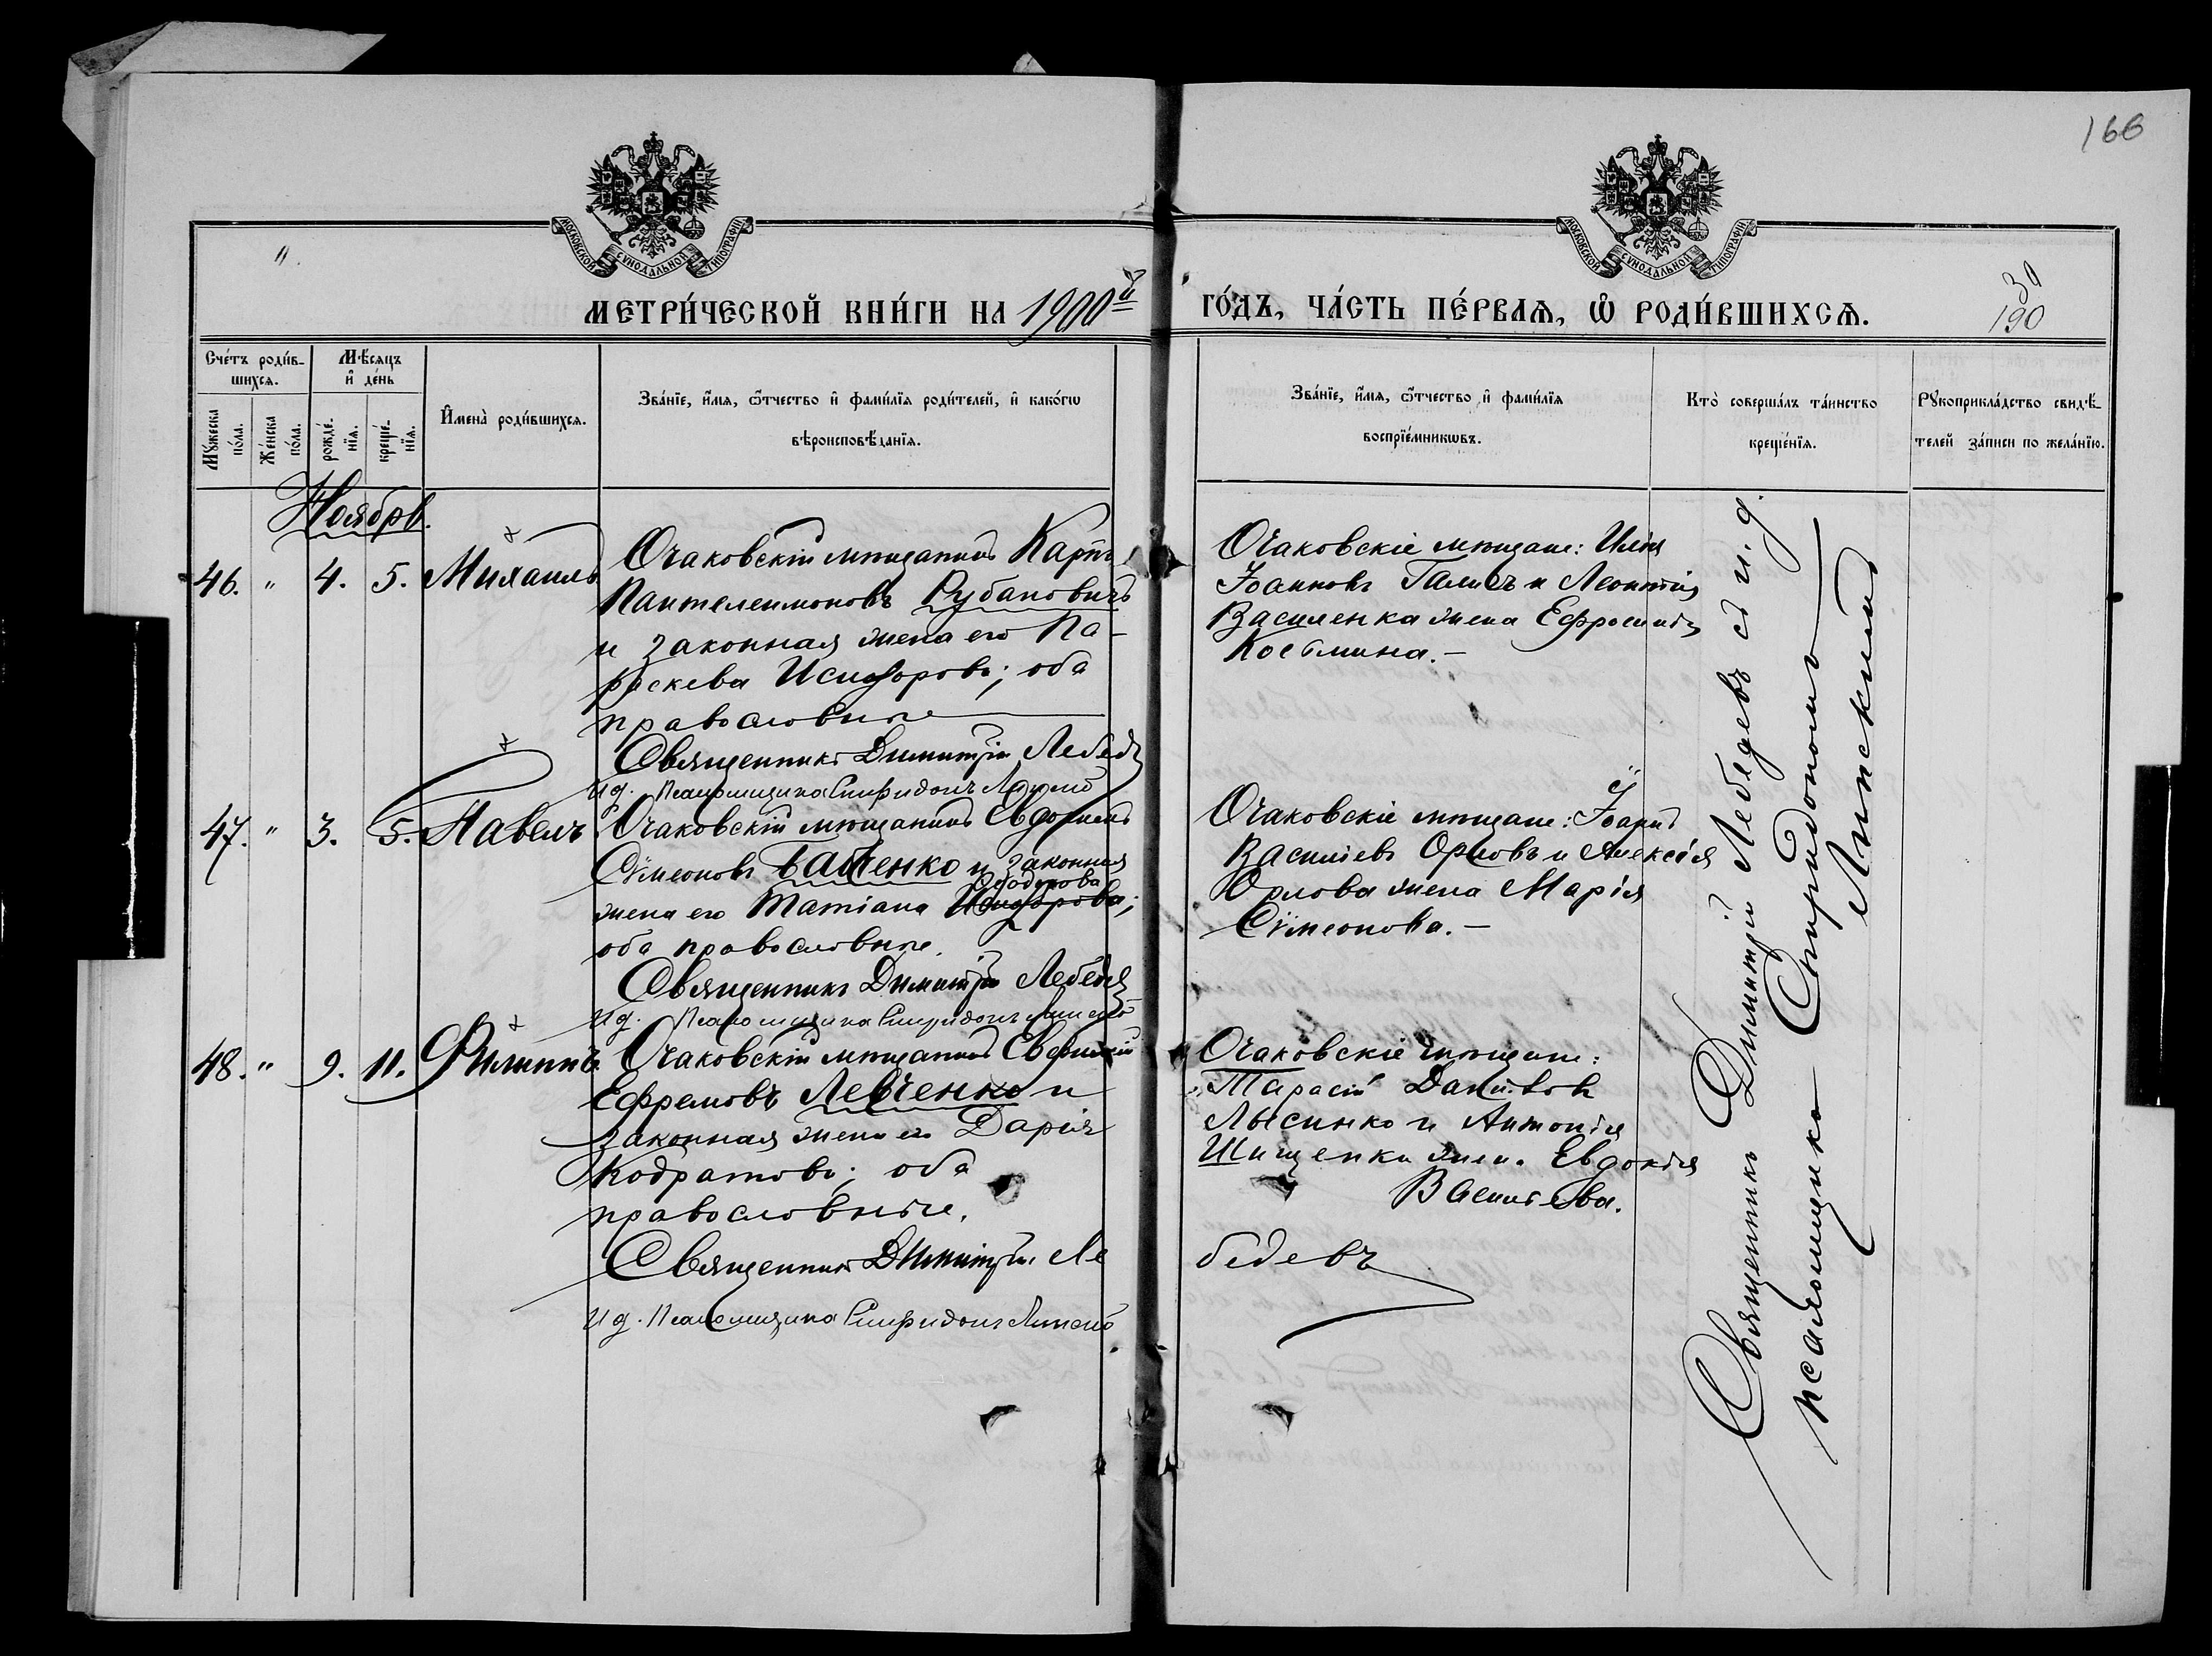 166
МОСКОВСКОЙ СѴНОДАЛЬНОЙ ТИПОГРАФІИ
МОСКОВСКОЙ СѴНОДАЛЬНОЙ ТИПОГРАФІИ
"
МЕТРИ́ЧЕСКОЙ КНИ́ГИ НА 1900й ГО́ДЪ, ЧА́СТЬ ПЕ́РВАѦ, Ѿ РОДИ́ВШИХСѦ.
190
Сче́тъ роди́в-
шихсѧ.
Мѣ́сѧцъ
и де́нь
Мꙋ́жеска по́ла.
Же́нска по́ла.
рожде́нїѧ.
креще́нїѧ.
Имена̀ роди́вшихсѧ.
Зва́нїе, и́мѧ, ѻ́тчество и фами́лїѧ роди́телей, и како́гѡ
вѣроисповѣ́данїѧ.
Зва́нїе, и́мѧ, ѻ́тчество и фами́лїѧ
воспрїе́мникѡвъ.
Кто̀ соверша́лъ та́инство
креще́нїѧ.
Рꙋкоприкла́дство свидѣ́-
телей за́писи по жела́нїю.
Ноябрь.
46. " 4. 5. Михаилъ
Очаковскій мѣщанинъ Карпъ
Пантелеимоновъ Рубановичъ
и законная жена его Па-
раскева Исидорова; оба
православные
Священникъ Димитрій Лебедевъ
И д. Псаломщика Спиридонъ Липскій
Очаковскіе мѣщане: Илія
Іоанновъ Галичъ и Леонтія
Василенка жена Ефросинія
Косьмина.-
47. " 3. 5. Павелъ
Очаковскій мѣщанинъ Евдокимъ
Сѵмеоновъ Бабенко и законная
Ѳеодорова
жена его Татіана Исидорова;
оба православные.
Священникъ Димитрій Лебедевъ
И д. Псаломщика Спиридонъ Липскій
Очаковскіе мѣщане: Іоаннъ
Василіевъ Орловъ и Алексія
Орлова жена Марія
Сѵмеонова.-
48. " 9. 11. Филиппъ.
Очаковскій мѣщанинъ Евфимій
Ефремовъ Левченко и
законная жена его Дарія
Кодратова; оба
православные.
Священникъ Димитрій Ле
бедевъ
И д. Псаломщика Спиридонъ Липскій
Очаковскіе мѣщане:
Тарасій Даниловъ
Лысенко и Антонія
Шищенки жена Евдокія
Василіева.
Священникъ Димитрій Лебедевъ съ и. д.
псаломщика Спиридономъ
Липскимъ